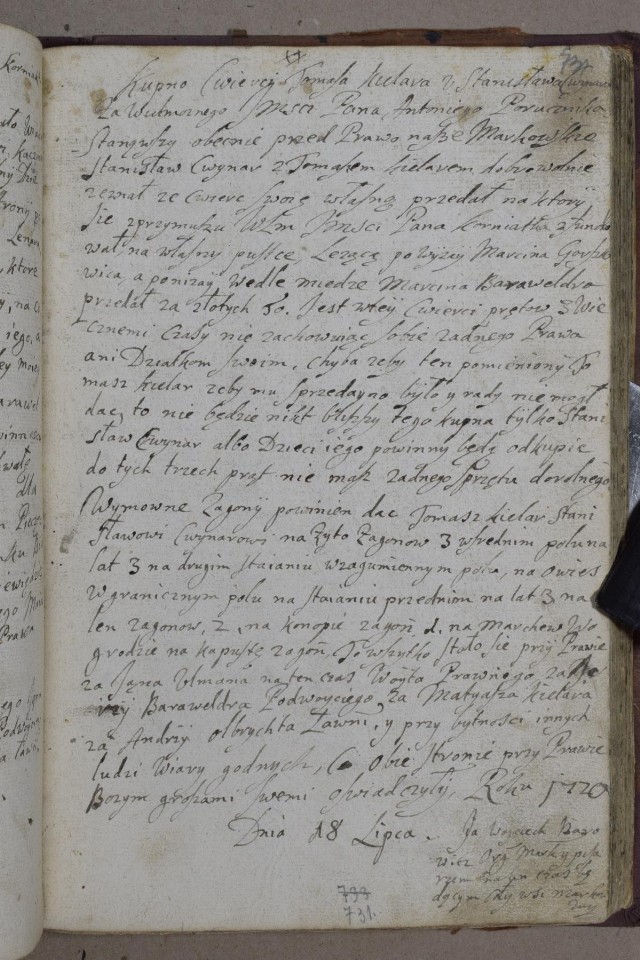 Kupno Cwierci Tomasa Kielara u Stanisława Cwynara
Za Wielmoznego Jmsci Pana Antoniego Porucznika
stanąwszy obecnie przed Prawo nasze Markowskie
Stanisław Cwynar z Tomaszem Kielarem dobrowolnie
zeznał ze Cwierc swoię własną przedał na ktory
sie z przymuszu WJm Jmsci Pana Korniakta z fundo
wał na własny pustce, Lezącą powyzey Marcina
a ponizay wedle miedze Marcina Baraweldro
przedał za złotych 50. Jest w tey Cwierci prętow 3 Wie
cznemi czasy nie zachowuiąc sobie zadnego Prawa
ani Dziatkom swoim, chyba zeby ten pomieniony To
masz Kielar zeby mu sprzedayno było y rady nie mogł
dac, to nie będzie nikt blizszy tego kupna tylko Stani
sław Cwynar albo Dzieci iego powinny będą odkupic
do tych trzech prąt nie masz zadnego sprzętu dorolnego
Wymowne Zagony powinien dac Tomasz Kielar Stani
sławowi Cwynarowi na Zyto Zagonow 3 w srednim polu na
lat 3 na drugim staianiu w zagumiennym polu, na Owies
w granicznym polu na staianiu przednim na lat 3 na
len zagonow, 2, na konopie zagon 1. na Marchew Wo
grodzie na kapustę zagon To wszytko stało sie przy Prawie
za Jana Ulmana na ten czas Woyta Prawnego za
Baraweldra Podwoyciego, za Matyasza Kielara
za Andrzy Olbrychta Ławni, y przy bytnosci innych
ludzi Wiary godnych, Co Obie stronie przy Prawie
Bozym groszami swemi oswiadczyły, Roku 1720
Dnia 18 Lipca. Ja Woyciech Baro
wicz Org Mark y pisa
rzem na ten czas bę
dącym tey wsi Markow
733
731.